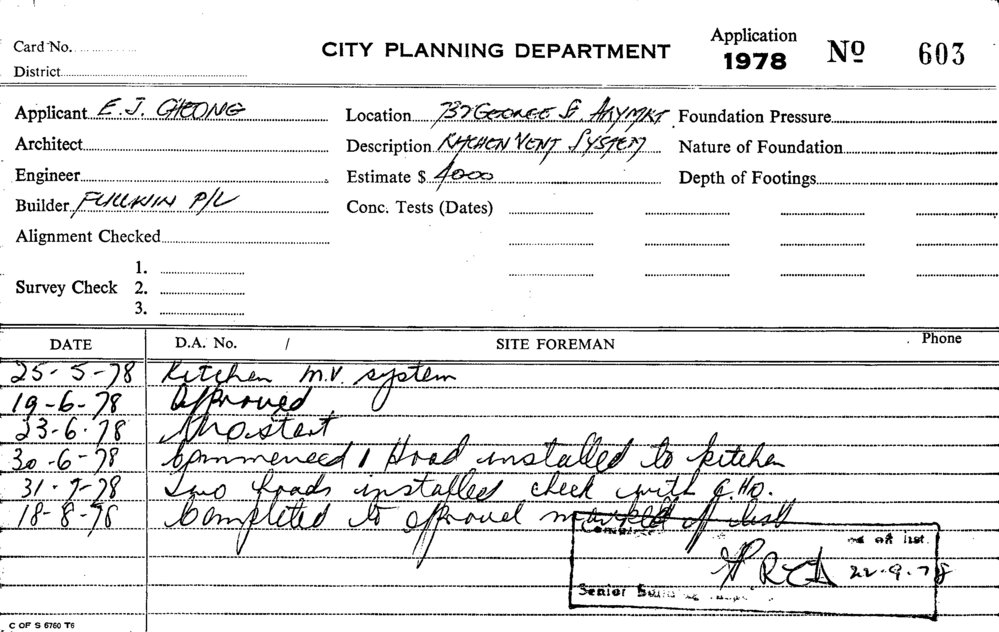 Card No.
CITY PLANNING DEPARTMENT
Application
1978 Nº 603
District
Applicant E. J. CHEONG
Location 737 GEORGE St. HAYMKT
Foundation Pressure
Architect
Description KITCHEN VENT SYSTEM
Nature of Foundation
Engineer
Estimate $ 4000
Depth of Footings
Builder FULLWIN P/L
Conc. Tests (Dates)
Alignment Checked
Survey Check 1.
2.
3.
DATE D.A. No. / SITE FOREMAN Phone
25-5-78 Kitchen M.V. system
19-6-78 Approved
23-6-78 No start
30-6-78 Commenced 1 Hood installed to kitchen
31-7-78 Two hoods installed check with
18-8-78 Completed to approval marked off list
off list.
22.9.78
Senior
C OF S 6760 T6